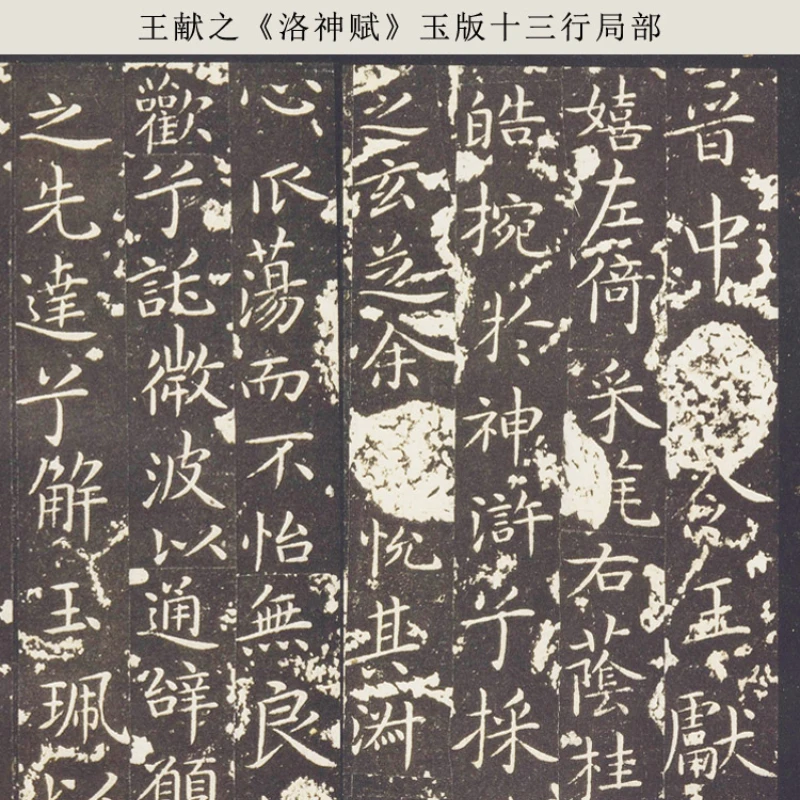 王献之《洛神赋》玉版十三行局部
晋中
令王獻
嬉左倚采旄右蔭桂
皓捥於神滸兮採
之玄芝余
悦其淑
心爪蕩而不怡無良
歡兮託微波以通辝願
之先達兮解玉珮以